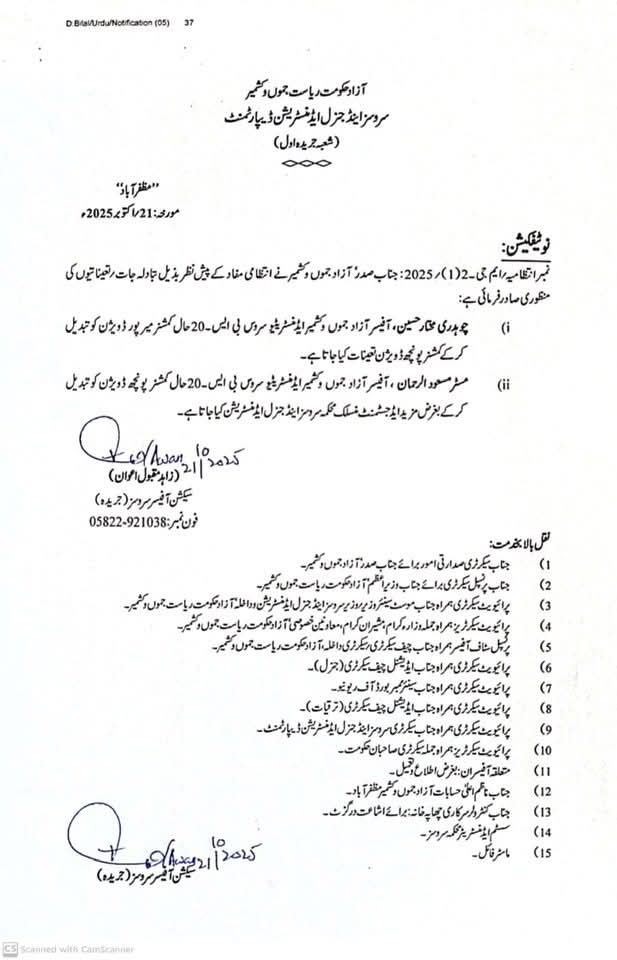 D:Bilal/Urdu/Notification (05) 37
آزاد حکومت ریاست جموں و کشمیر
سروسز اینڈ جنرل ایڈمنسٹریشن ڈیپارٹمنٹ
(شعبہ جریدہ اول)
"مظفرآباد"
مورخہ:21/اکتوبر 2025ء
نوٹیفکیشن:
نمبر انتظامیہ/ایم جی۔2(1)/2025: جناب صدرؔ آزاد جموں و کشمیر نے انتظامی مفاد کے پیش نظر بذیل تبادلہ جات/تعیناتیوں کی
منظوری صادر فرمائی ہے:
(i چوہدری مختار حسین، آفیسر آزاد جموں و کشمیر ایڈمنسٹریٹیو سروس بی ایس۔20 حال کمشنر میرپور ڈویژن کو تبدیل
کر کے کمشنر پونچھ ڈویژن تعینات کیا جاتا ہے۔
(ii مسٹر مسعود الرحمان، آفیسر آزاد جموں و کشمیر ایڈمنسٹریٹیو سروس بی ایس۔20 حال کمشنر پونچھ ڈویژن کو تبدیل
کر کے بغرض مزید ایڈجسٹمنٹ منسلک محکمہ سروسز اینڈ جنرل ایڈمنسٹریشن کیا جاتا ہے۔
Awan 21/10/2025
(زاہد مقبول اعوان)
سیکشن آفیسر سروسز (جریدہ)
فون نمبر:05822-921038
نقل بالا بخدمت:
(1 جناب سیکرٹری صدارتی امور برائے جناب صدرؔ آزاد جموں و کشمیر۔
(2 جناب پرنسپل سیکرٹری برائے جناب وزیراعظمؔ آزاد حکومت ریاست جموں و کشمیر۔
(3 پرائیویٹ سیکرٹری ہمراہ جناب موسٹ سینئر وزیر/وزیر سروسز اینڈ جنرل ایڈمنسٹریشن و داخلہؔ آزاد حکومت ریاست جموں و کشمیر۔
(4 پرائیویٹ سیکرٹریز ہمراہ جملہ وزراء کرام، مشیران کرام، معاونین خصوصیؔ آزاد حکومت ریاست جموں و کشمیر۔
(5 پرنسپل سٹاف آفیسر ہمراہ جناب چیف سیکرٹری/سیکرٹری داخلہ، آزاد حکومت ریاست جموں و کشمیر۔
(6 پرائیویٹ سیکرٹری ہمراہ جناب ایڈیشنل چیف سیکرٹری (جنرل)۔
(7 پرائیویٹ سیکرٹری ہمراہ جناب سینئر ممبر بورڈ آف ریونیو۔
(8 پرائیویٹ سیکرٹری ہمراہ جناب ایڈیشنل چیف سیکرٹری (ترقیات)۔
(9 پرائیویٹ سیکرٹری ہمراہ جناب سیکرٹری سروسز اینڈ جنرل ایڈمنسٹریشن ڈیپارٹمنٹ۔
(10 پرائیویٹ سیکرٹریز ہمراہ جملہ سیکرٹری صاحبان حکومت۔
(11 متعلقہ آفیسران: بغرض اطلاع و تعمیل۔
(12 جناب ناظم اعلیٰ حسابات آزاد جموں و کشمیر مظفرآباد۔
(13 جناب کنٹرولر سرکاری چھاپہ خانہ: برائے اشاعت در گزٹ۔
(14 سسٹم ایڈمنسٹریٹر محکمہ سروسز۔
(15 ماسٹر فائل۔
Awan 21/10/2025
سیکشن آفیسر سروسز (جریدہ)
CS Scanned with CamScanner